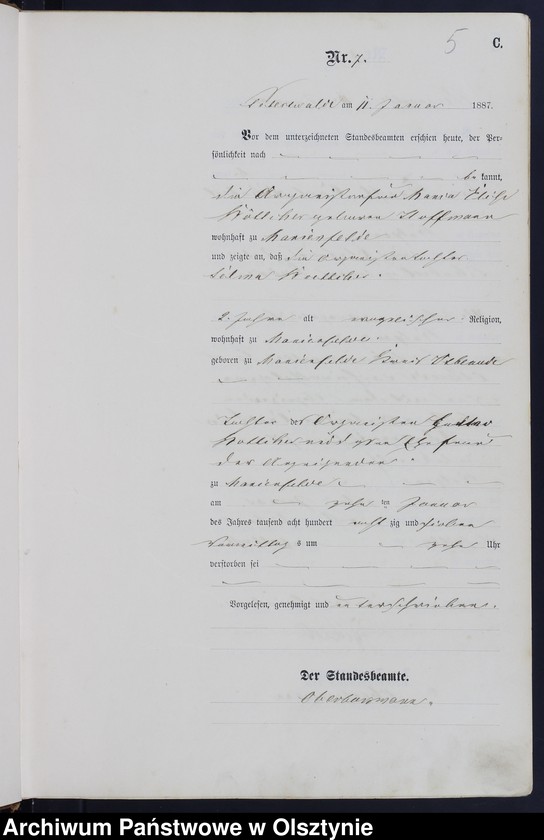 5 C.
Nr. 7.
am 11. Januar 1887.
Vor dem unterzeichneten Standesbeamten erschien heute, der Per-
sönlichkeit nach
be kannt,
die Organistenfrau Maria
geborene Hoffmann
wohnhaft zu Marienfelde
und zeigte an, daß die Organistentochter
Selma
2 Jahre alt evangelischer Religion,
wohnhaft zu Marienfelde
geboren zu Marienfelde Kreis Osterode
Tochter des Organisten Gustav
und Ehefrau
der
zu Marienfelde
am zehn ten Januar
des Jahres tausend acht hundert acht zig und sieben
Vormittag s um zehn Uhr
verstorben sei
Vorgelesen, genehmigt und unterschrieben.
Der Standesbeamte.
Archiwum Państwowe w Olsztynie